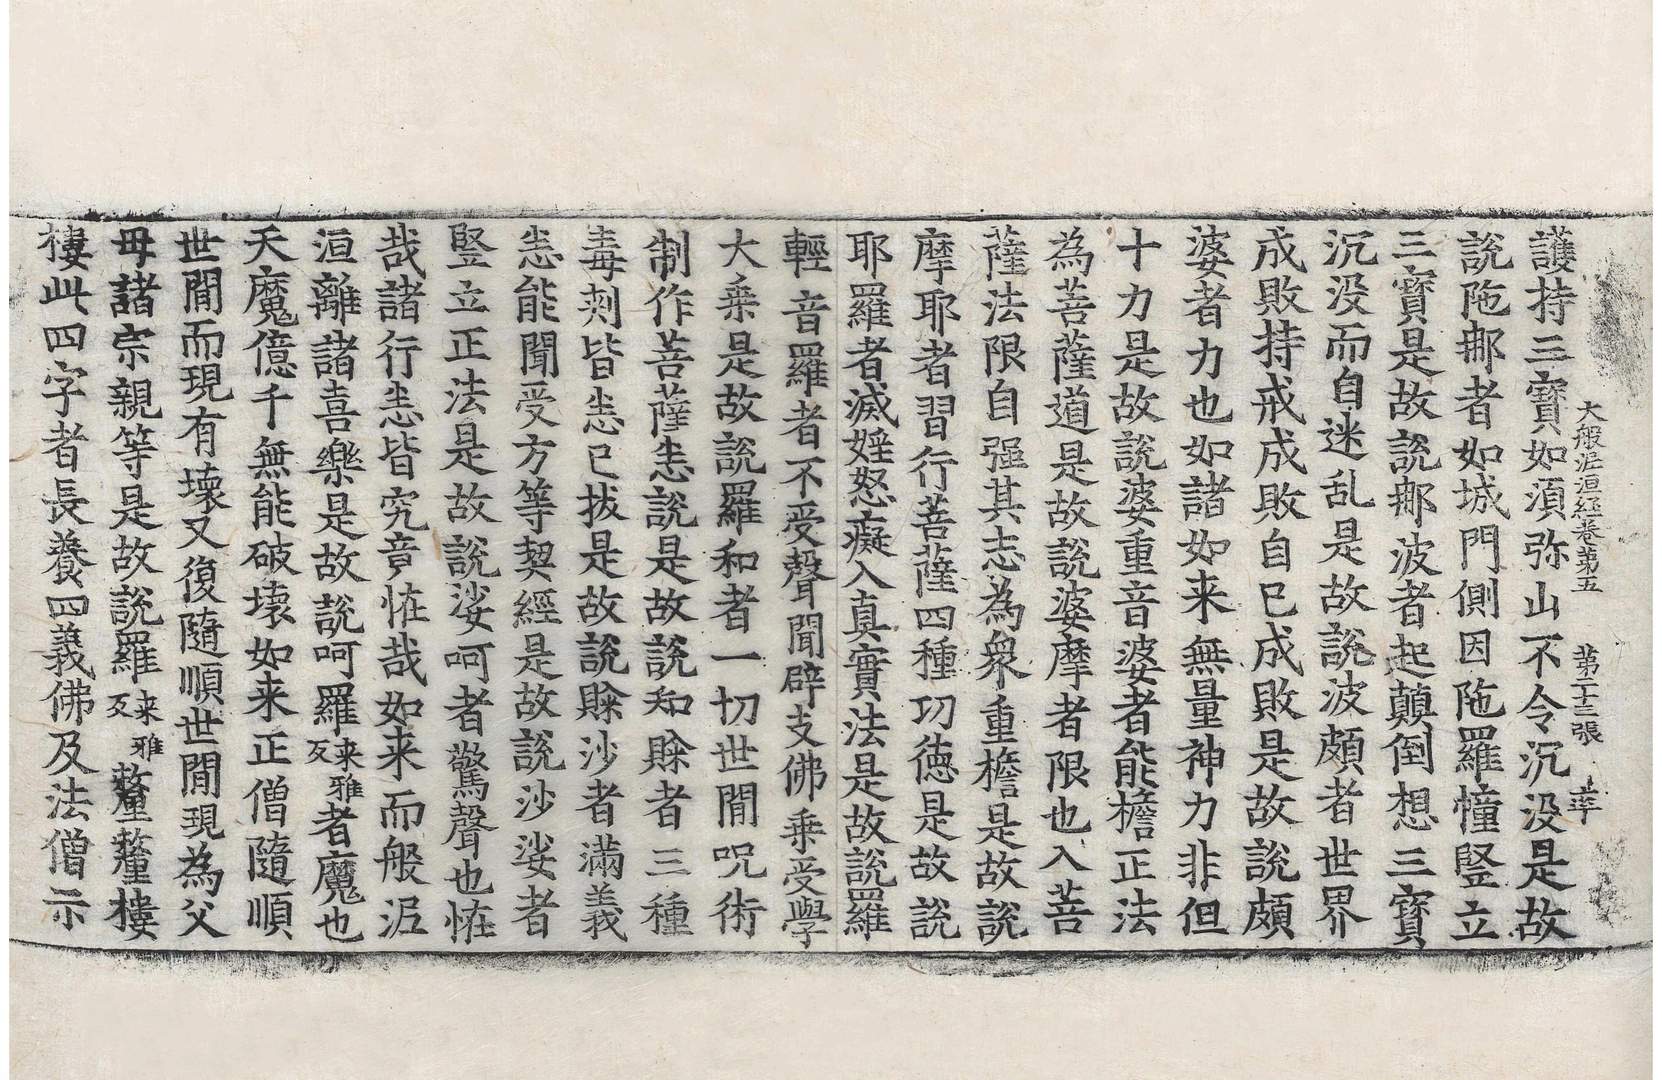 大般泥洹経卷苐五　苐二十三張　𡘋
護持三寳如湏弥山不令沉没是故
說陁𨚗者如城門側因陁羅幢竪立
三寳是故說𨚗波者起顛倒想三寳
沉没而自迷乱是故說波頗者世界
成敗持戒成敗自已成敗是故說頗
婆者力也如諸如来無量神力非但
十力是故說婆重音婆者能檐正法
為菩薩道是故說婆摩者限也入菩
薩法限自强其志為衆重檐是故說
摩耶者習行菩薩四種功徳是故說
耶羅者滅婬怒癡入真實法是故說羅
輕音羅者不受聲聞辟支佛乗受學
大乗是故說羅和者一切世間呪術
制作菩薩悉說是故說和賒者三種
毒刾皆悉已拔是故說賒沙者滿義
悉能聞受方等契經是故說沙娑者
竪立正法是故說娑呵者驚聲也恠
哉諸行悉皆究竟恠哉如来而般泥
洹離諸喜樂是故說呵羅来雅反者魔也
天魔億千無能破壞如来正僧隨順
世間而現有壞又復隨順世間現為父
母諸宗親等是故說羅来雅反釐釐樓
樓此四字者長養四義佛及法僧示